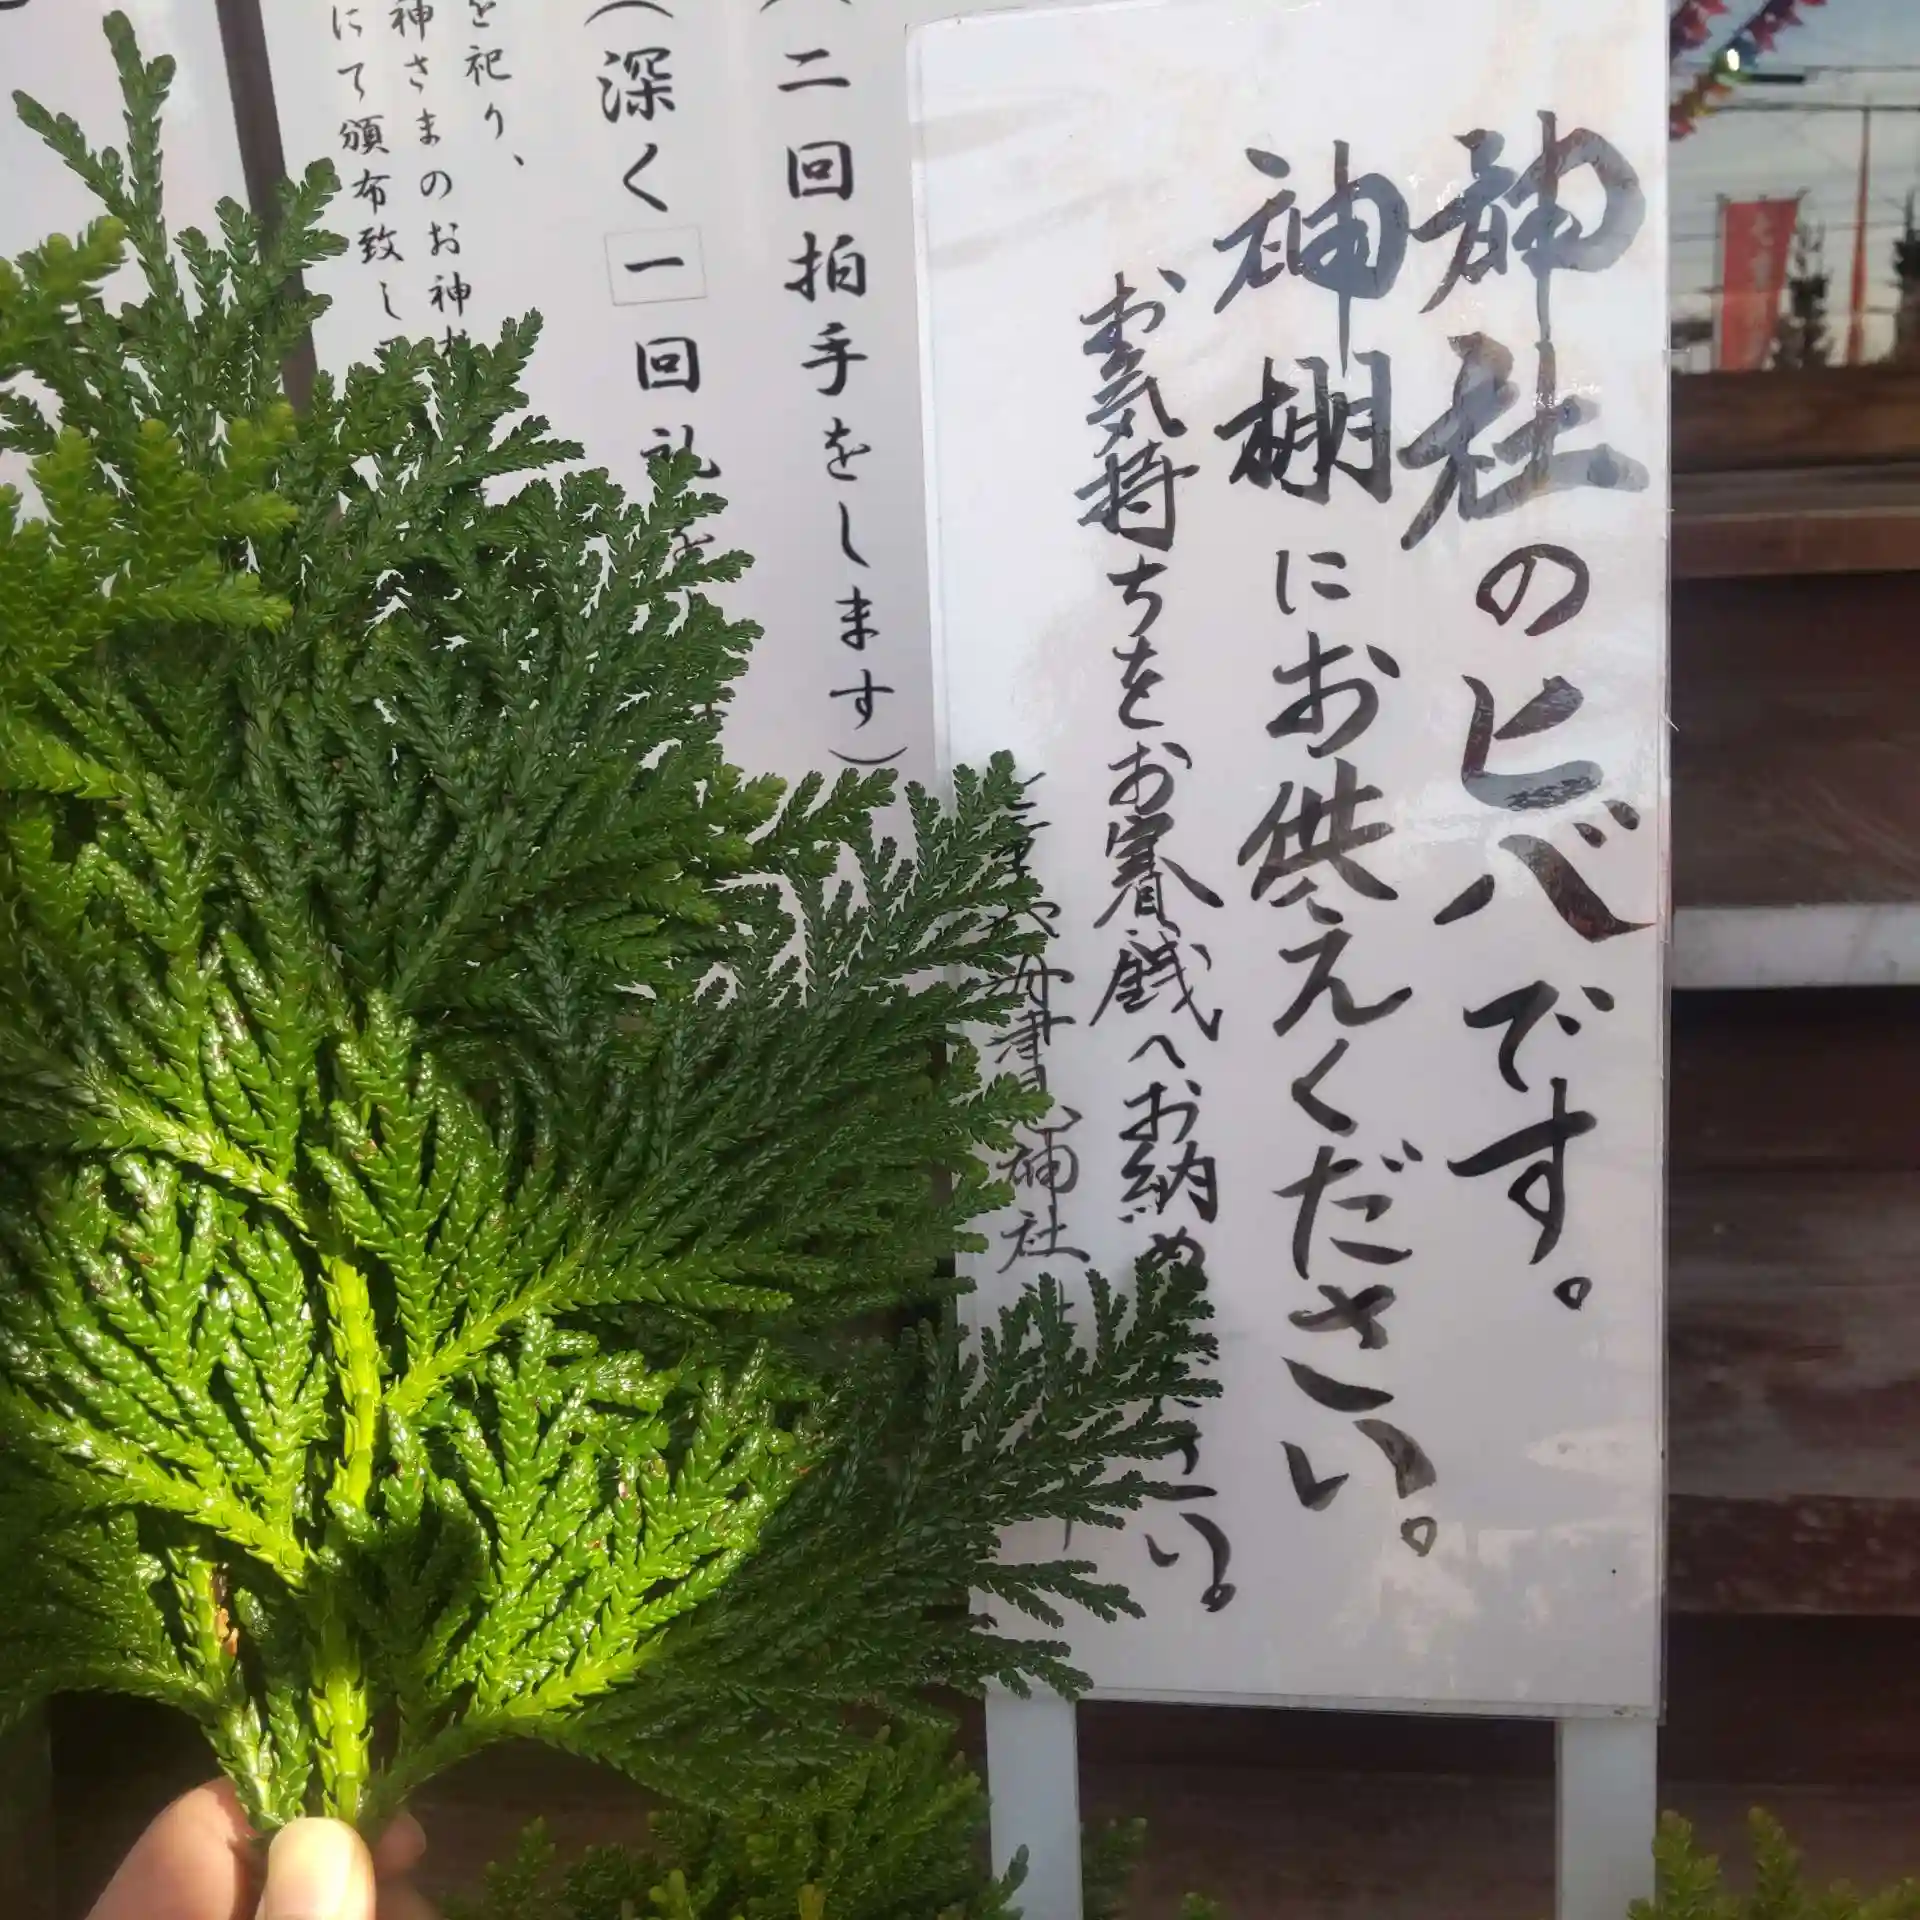 神社のヒバです。
神棚にお供えください。
お気持ちをお賽銭へお納め
さい。
神社
二回拍手をします）
（深く一回礼を
を祀り、
神さまのお神
にて頒布致し